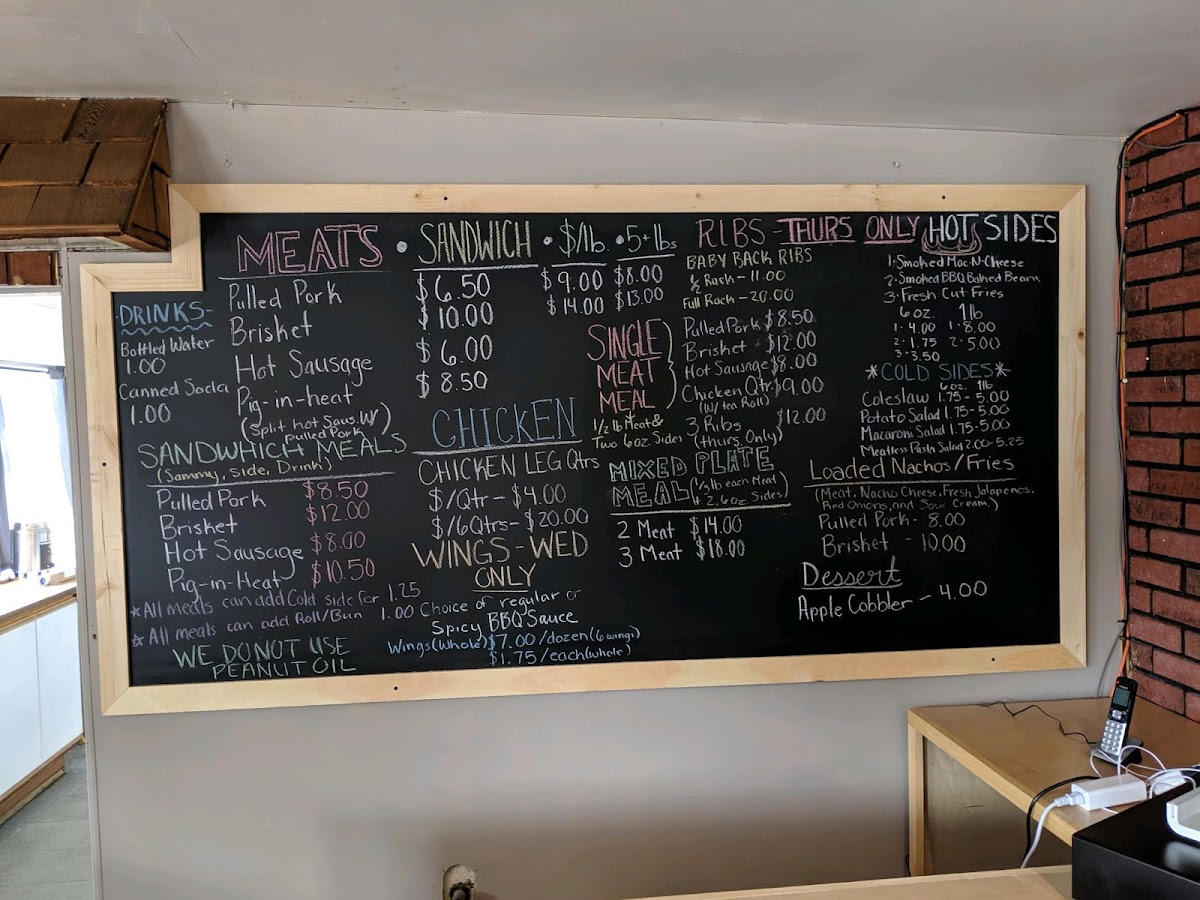 MEATS • SANDWICH • $/lb. • 5+lbs
Pulled Pork $6.50 $9.00 $8.00
Brisket $10.00 $14.00 $13.00
Hot Sausage $6.00
Pig-in-heat $8.50
(Split hot Saus. W/
pulled Pork)
-DRINKS-
Bottled Water
1.00
Canned Soda
1.00
SANDWHICH MEALS
(Sammy, Side, Drink)
Pulled Pork $8.50
Brisket $12.00
Hot Sausage $8.00
Pig-in-Heat $10.50
*All meals can add Cold side for 1.25
*All meals can add Roll/Bun 1.00
WE DO NOT USE
PEANUT OIL
CHICKEN
CHICKEN LEG Qtrs
$/Qtr - $4.00
$/6Qtrs - $20.00
WINGS - WED
ONLY
Choice of regular or
Spicy BBQ Sauce
Wings(Whole) $7.00/dozen(6 wings)
$1.75/each(whole)
RIBS - THURS ONLY
BABY BACK RIBS
½ Rack - 11.00
Full Rack - 20.00
SINGLE
MEAT
MEAL
1/2 lb Meat &
Two 6oz. Sides
Pulled Pork $8.50
Brisket $12.00
Hot Sausage $8.00
Chicken Qtr $9.00
(W/ tea Roll)
3 Ribs $12.00
(thurs. Only)
MIXED PLATE
MEAL (1/3 lb each Meat
& 2.6oz. Sides)
2 Meat $14.00
3 Meat $18.00
HOT SIDES
1. Smoked Mac-N-Cheese
2. Smoked BBQ Baked Beans
3. Fresh Cut Fries
6oz. 1lb
1. 4.00 1. 8.00
2. 1.75 2. 5.00
3. 3.50
*COLD SIDES*
6oz. 1lb
Coleslaw 1.75-5.00
Potato Salad 1.75-5.00
Macaroni Salad 1.75-5.00
Meatless Pasta Salad 2.00-5.25
Loaded Nachos/Fries
(Meat, Nacho Cheese, Fresh Jalapenos,
Red Onions, and Sour Cream)
Pulled Pork - 8.00
Brisket - 10.00
Dessert
Apple Cobbler - 4.00